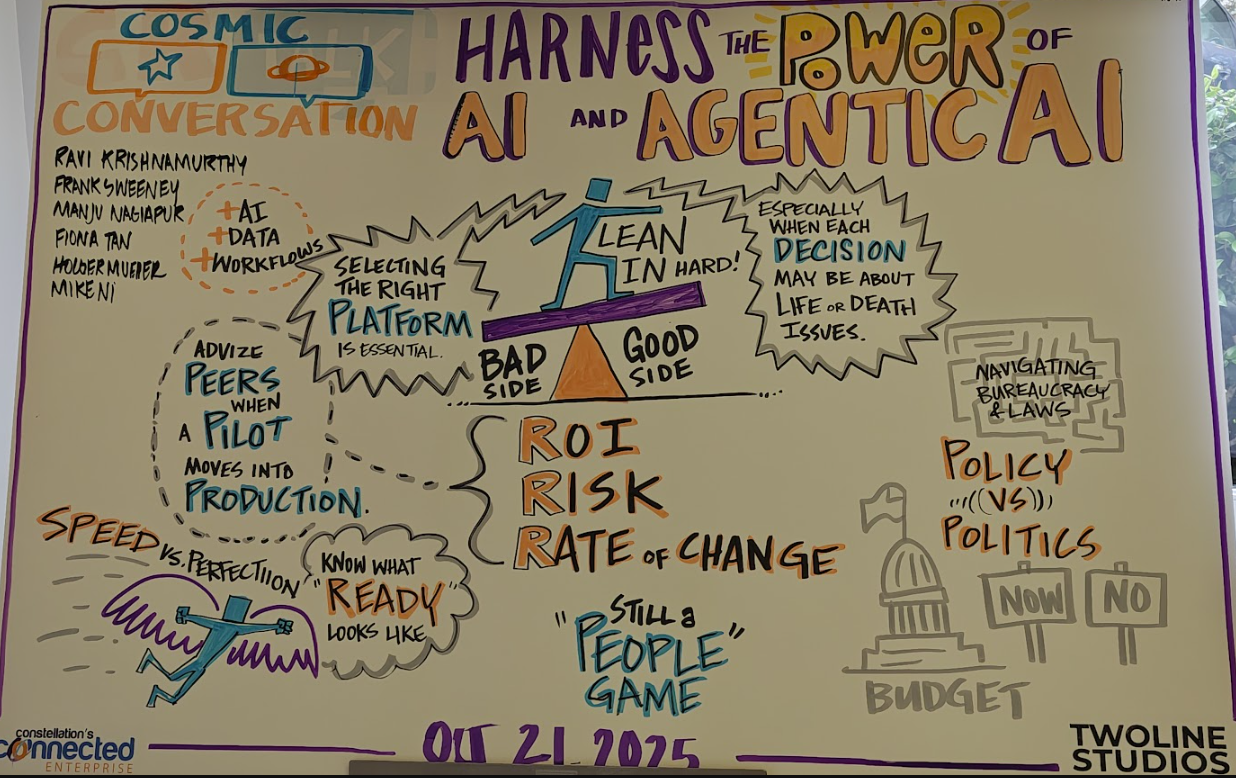 COSMIC
CONVERSATION
HARNESS THE POWER OF
AI AND AGENTIC AI
RAVI KRISHNAMURTHY
FRANK SWEENEY
MANJU NAGLAPUR
FIONA TAN
HOLGER MUELLER
MIKE NI
+AI
+DATA
+WORKFLOWS
SELECTING
THE RIGHT
PLATFORM
IS ESSENTIAL.
LEAN
IN HARD!
BAD
SIDE
GOOD
SIDE
ESPECIALLY
WHEN EACH
DECISION
MAY BE ABOUT
LIFE OR DEATH
ISSUES.
ADVIZE
PEERS
WHEN
A PILOT
MOVES INTO
PRODUCTION.
ROI
RISK
RATE OF CHANGE
NAVIGATING
BUREAUCRACY
& LAWS
POLICY
((VS))
POLITICS
NOW
NO
BUDGET
SPEED VS. PERFECTIION
KNOW WHAT
"READY"
LOOKS LIKE
STILL a
"PEOPLE"
GAME
constellation's
connected
ENTERPRISE
OCT 21, 2025
TWOLINE
STUDIOS